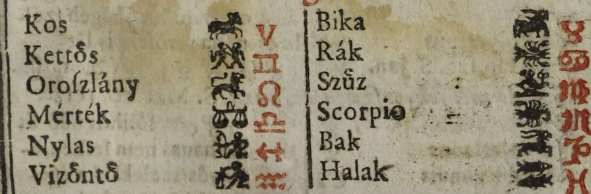 Kos ♈
Kettős ♊
Oroſzlány ♌
Mérték ♎
Nylas ♐
Vizőntő ♒
Bika ♉
Rák ♋
Szűz ♍
Scorpio ♏
Bak ♑
Halak ♓